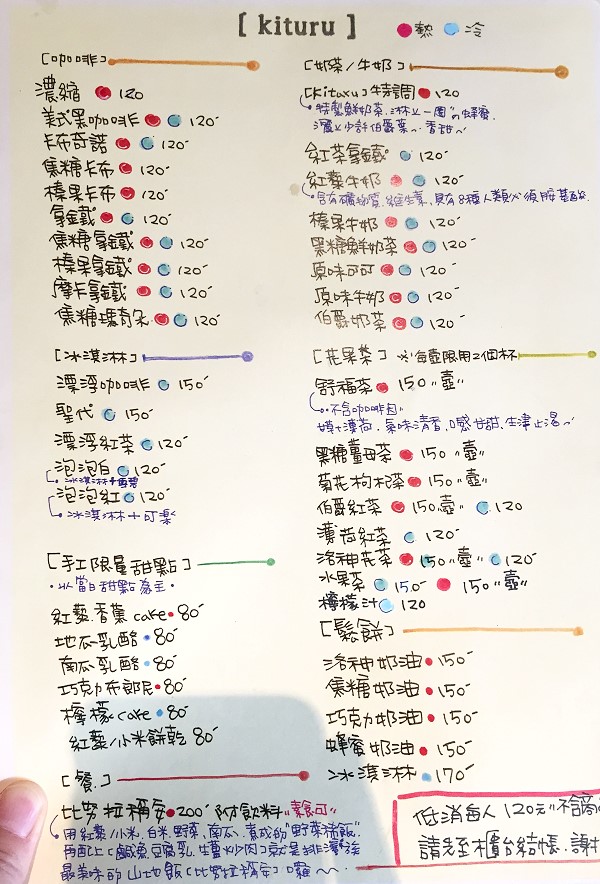 [ kituru ]
熱 冷
[咖啡]
濃縮 120
美式黑咖啡 120
卡布奇諾 120
焦糖卡布 120
榛果卡布 120
拿鐵 120
焦糖拿鐵 120
榛果拿鐵 120
摩卡拿鐵 120
焦糖瑪奇朵 120
[冰淇淋]
漂浮咖啡 150
聖代 150
漂浮紅茶 120
泡泡白 120
冰淇淋+雪碧
泡泡紅 120
冰淇淋+可樂
[手工限量甜點]
·以當日甜點為主·
紅藜.香蕉cake 80
地瓜乳酪 80
南瓜乳酪 80
巧克力布郎尼 80
檸檬cake 80
紅藜小米餅乾 80
[餐]
比努拉稱安 200 附飲料 "素食可"
用紅藜.小米.白米.野菜.南瓜.煮成的"野菜稀飯"
再配上(鹹魚.豆腐乳.生薑炒肉)就是排灣族
最美味的山地飯(比努拉稱安)囉~~
[奶茶/牛奶]
[kituru]特調 120
特製鮮奶茶.淋上一圈"蜂蜜.
灑上少許伯爵葉~香甜~
紅茶拿鐵 120
紅藜牛奶 120
榛果牛奶 120
黑糖鮮奶茶 120
原味可可 120
原味牛奶 120
伯爵奶茶 120
[花果茶] ※每壺限用2個杯
舒福茶 150"壺"
·不含咖啡因"
薄荷.氣味清香.口感甘甜.生津止渴~
黑糖薑母茶 150"壺"
菊花枸杞茶 150"壺"
伯爵紅茶 150"壺" 120
薄荷紅茶 120
洛神花茶 150"壺" 120
水果茶 150 150"壺"
檸檬汁 120
[鬆餅]
洛神奶油 150
焦糖奶油 150
巧克力奶油 150
蜂蜜奶油 150
冰淇淋 170
低消每人120元"不含
請先至櫃台結帳.謝